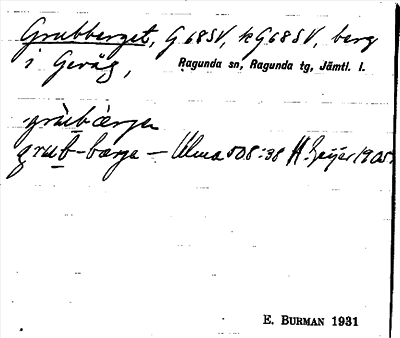 Grubberget, G 68 SV, k G 68 SV, berg
i Geväg, Ragunda sn, Ragunda tg, Jämtl. l.
grùbærje
grub-bærge — Ulma 508:38 H. Geijer 1905
E. BURMAN 1931